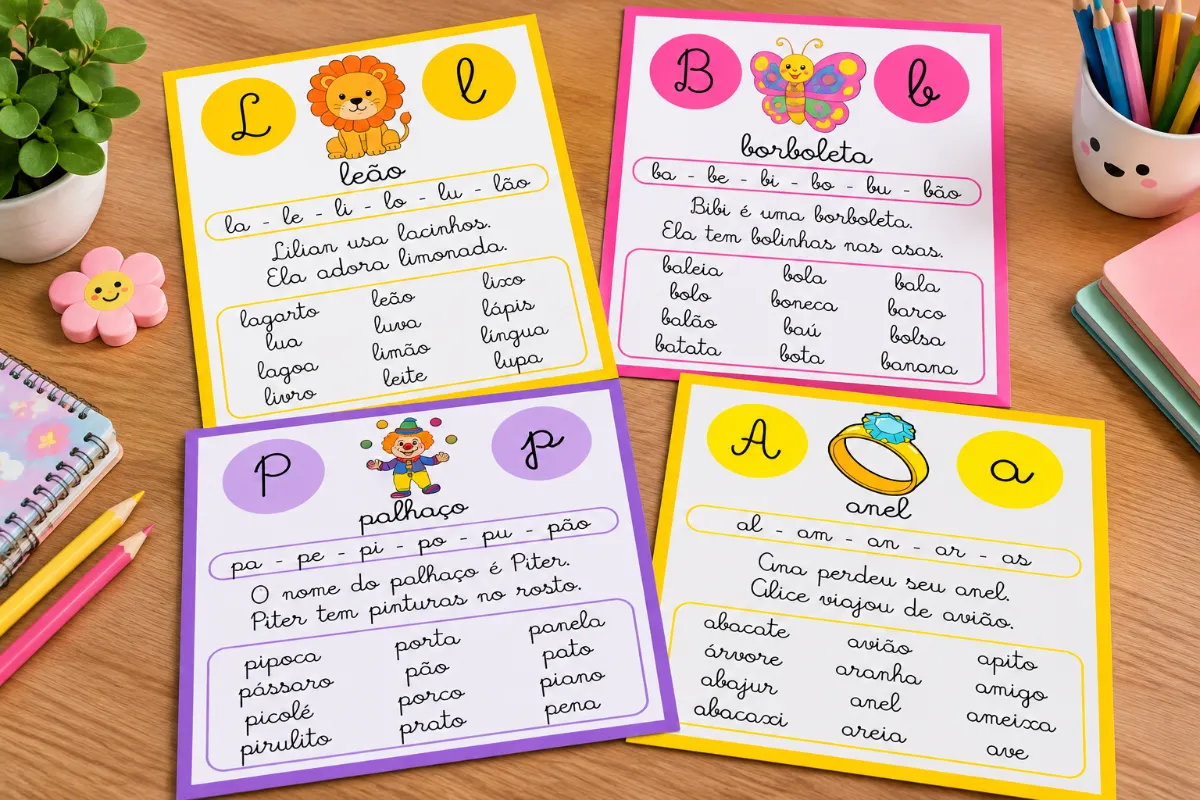 L l
leão
la - le - li - lo - lu - lão
Lilian usa lacinhos.
Ela adora limonada.
lagarto leão lixo
lua luva lápis
lagoa limão língua
livro leite lupa
B b
borboleta
ba - be - bi - bo - bu - bão
Bibi é uma borboleta.
Ela tem bolinhas nas asas.
baleia bola bala
bolo boneca barco
balão baú bolsa
batata bota banana
P p
palhaço
pa - pe - pi - po - pu - pão
O nome do palhaço é Piter.
Piter tem pinturas no rosto.
pipoca porta panela
pássaro pão pato
picolé porco piano
pirulito prato pena
A a
anel
al - am - an - ar - as
Ana perdeu seu anel.
Alice viajou de avião.
abacate avião apito
árvore aranha amigo
abajur anel ameixa
abacaxi areia ave